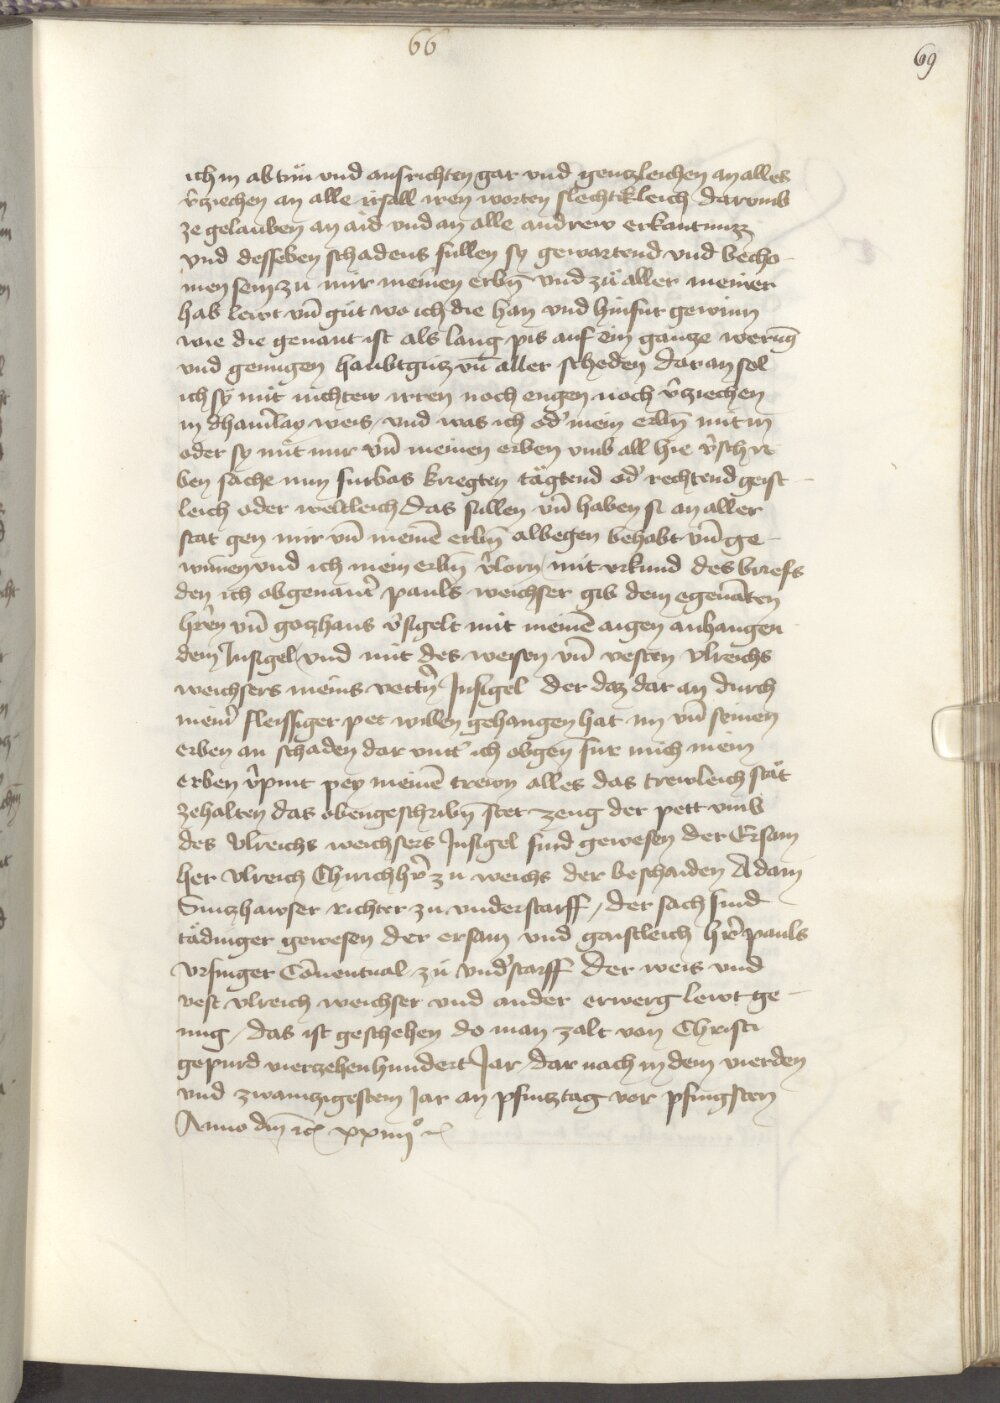 66
69
ich in ab tůn und ausrichten gar und gentzleichen an alles
v̉ziechen an alle irsall iren worten slechtikleich darumb
ze gelauben an aid und an alle andrew erkantnuzz
und desselben schadens sullen sy gewartend und bech̊o-
men sein zu mir meinen erbn̄ und zů aller meiner
hab lewt vn̄ gůt wo ich die han und hinfur gewinn
wie die genant ist als lang pis auf ein gantze werūg
und genugen haubtgůtz vn̄ aller scheden dar an sol
ich sy mit nichtew irren noch engen noch v̉ziechen
in chain̉lay weis / und was ich od̉ mein erbn̄ mit in
oder sy mit mir vn̄ meinen erben umb all hie v̉schri
ben sache nun furbas kriegten tägtend od̉ rechtend geist-
leich oder weltleich das sullen vn̄ haben si an aller
stat gen mir vn̄ meinē erbn̄ albegen behabt vn̄ ge-
wunnen und ich mein erbn̄ v̉lorn / mit urkund des briefs
den ich obgenant̉ pauls weichser gib dem egenāten
hr̉en vn̄ gotzhaus v̉sigelt mit meinē aigen anhangen
dem Insigel / und mit des weisen vn̄ vesten Ulreichs
weichsers meins vettn̉ Insigel der daz dar an durch
mein̉ fleissiger pet willen gehangen hat im vn̄ seinen
erben an schaden dar unt̉ ich obgen̄ fur mich mein
erben v̉pint pey meinē trewn alles das trewleich stät
zehalten das obengeschribn̄ stet zeug der pett umb
des Ulreichs weichsers Insigel sind gewesen der Ersam
her Ulreich Chirichhr̉ zu weichs der beschaiden Adam
Sintzhawser richter zu understorff / der sach sind
tädinger gewesen der ersam und gaistleich hr̉ pauls
Ursinger Cōuentual zů und̉storff der weis und
vest ulreich weichser und ander erwerg lewt ge-
nug / das ist geschehen do man zalt von Christi
gepurd vierzehenhundert Jar / dar nach in dem vierden
und zwaintzigestem Jar an pfintztag vor pfingsten
Anno dn̄i xxiiij⁰